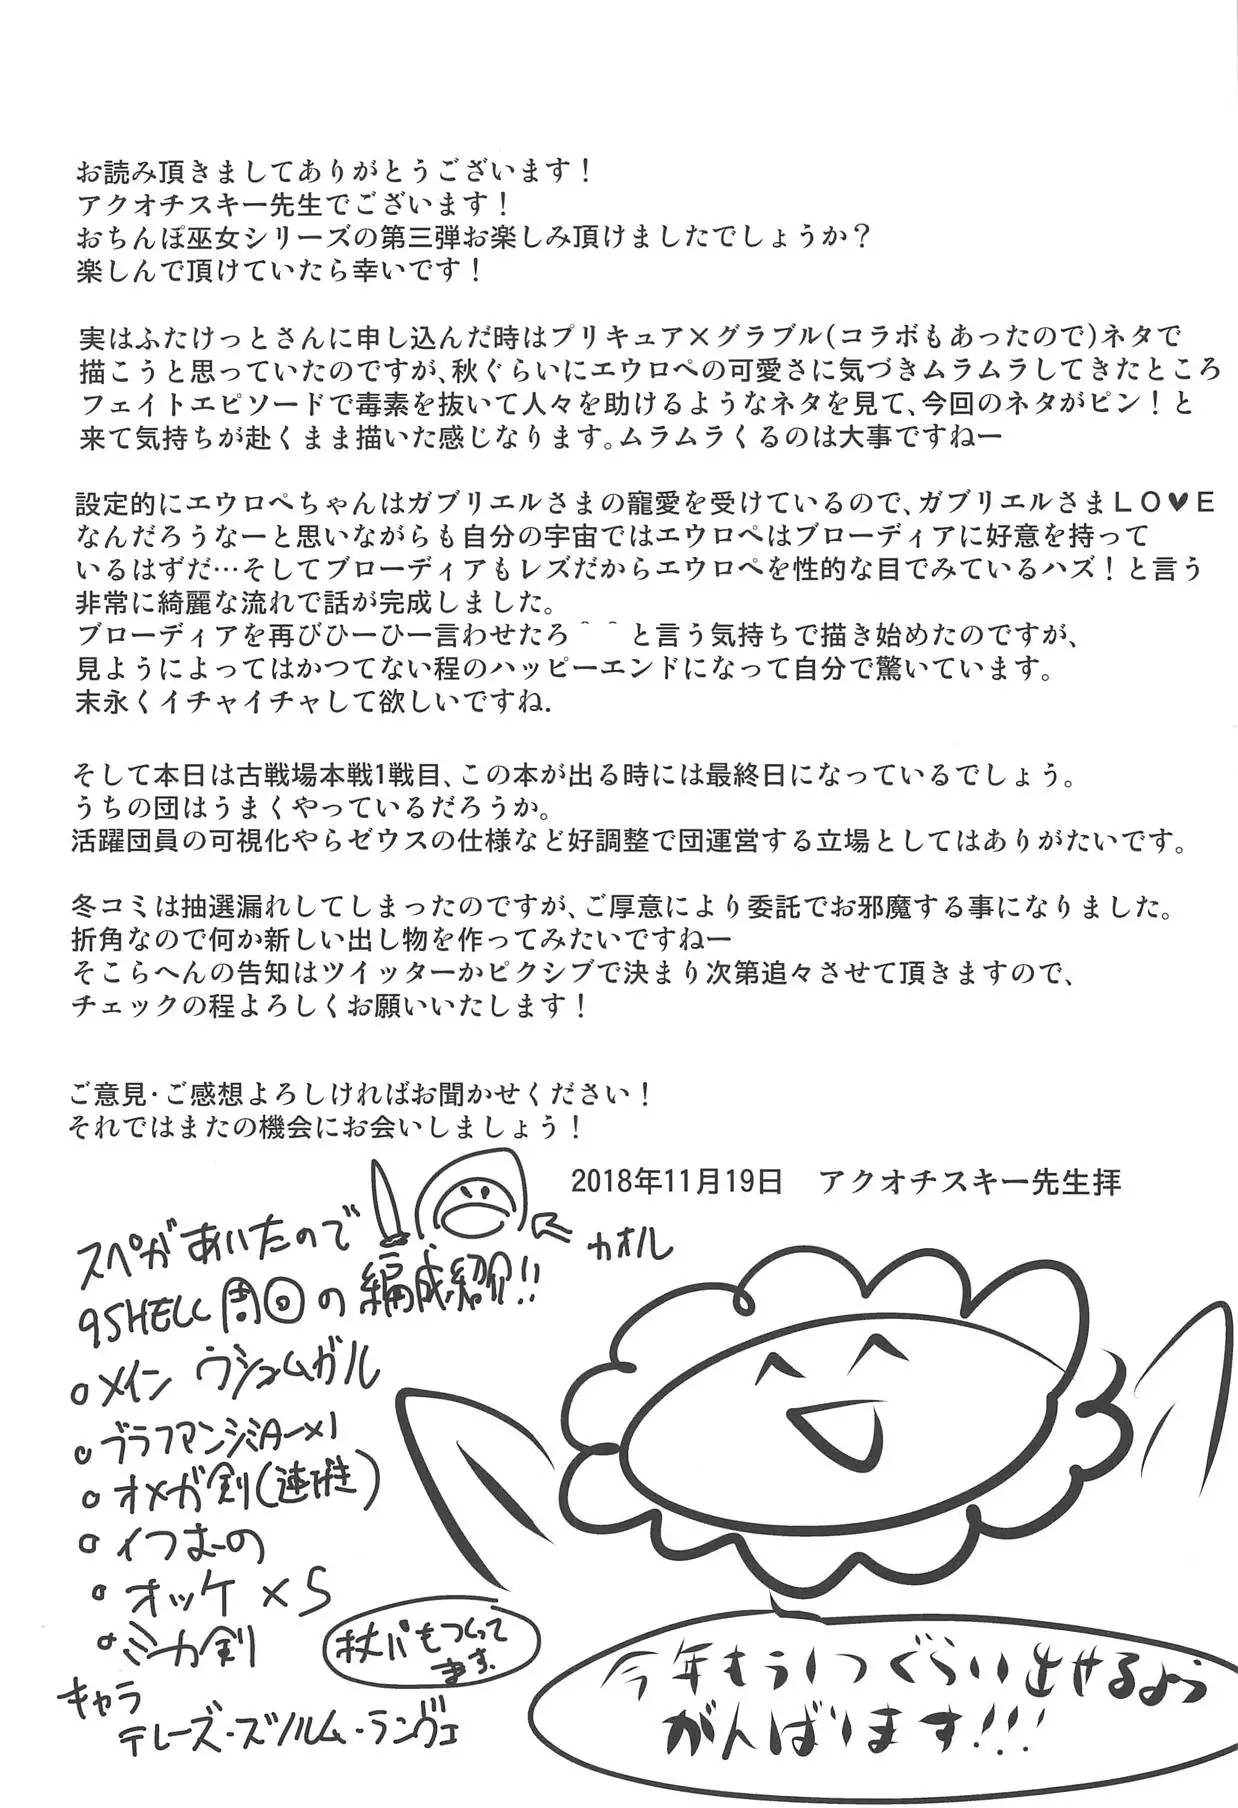 お読み頂きましてありがとうございます！
アクオチスキー先生でございます！
おちんぽ巫女シリーズの第三弾お楽しみ頂けましたでしょうか？
楽しんで頂けていたら幸いです！
実はふたけっとさんに申し込んだ時はプリキュア×グラブル(コラボもあったので)ネタで
描こうと思っていたのですが、秋ぐらいにエウロペの可愛さに気づきムラムラしてきたところ
フェイトエピソードで毒素を抜いて人々を助けるようなネタを見て、今回のネタがピン！と
来て気持ちが赴くまま描いた感じなります。ムラムラくるのは大事ですねー
設定的にエウロペちゃんはガブリエルさまの寵愛を受けているので、ガブリエルさまＬＯ♥Ｅ
なんだろうなーと思いながらも自分の宇宙ではエウロペはブローディアに好意を持って
いるはずだ…そしてブローディアもレズだからエウロペを性的な目でみているハズ！と言う
非常に綺麗な流れで話が完成しました。
ブローディアを再びひーひー言わせたろ＾＾と言う気持ちで描き始めたのですが、
見ようによってはかつてない程のハッピーエンドになって自分で驚いています。
末永くイチャイチャして欲しいですね.
そして本日は古戦場本戦1戦目、この本が出る時には最終日になっているでしょう。
うちの団はうまくやっているだろうか。
活躍団員の可視化やらゼウスの仕様など好調整で団運営する立場としてはありがたいです。
冬コミは抽選漏れしてしまったのですが、ご厚意により委託でお邪魔する事になりました。
折角なので何か新しい出し物を作ってみたいですねー
そこらへんの告知はツイッターかピクシブで決まり次第追々させて頂きますので、
チェックの程よろしくお願いいたします！
ご意見・ご感想よろしければお聞かせください！
それではまたの機会にお会いしましょう！
2018年11月19日　アクオチスキー先生拝
カオル
スペがあいたので
95HELL周回の編成紹介!!
○メイン ウシュムガル
○ブラフマンシミター×1
○オメガ剣(進境)
○イつおーの
○オッケ×5
○ミカ剣
杖パもつくって
ます.
キャラ
テレーズ・ズノルム・ランヴェ
今年もう1つぐらい出せるよう
がんばります!!!